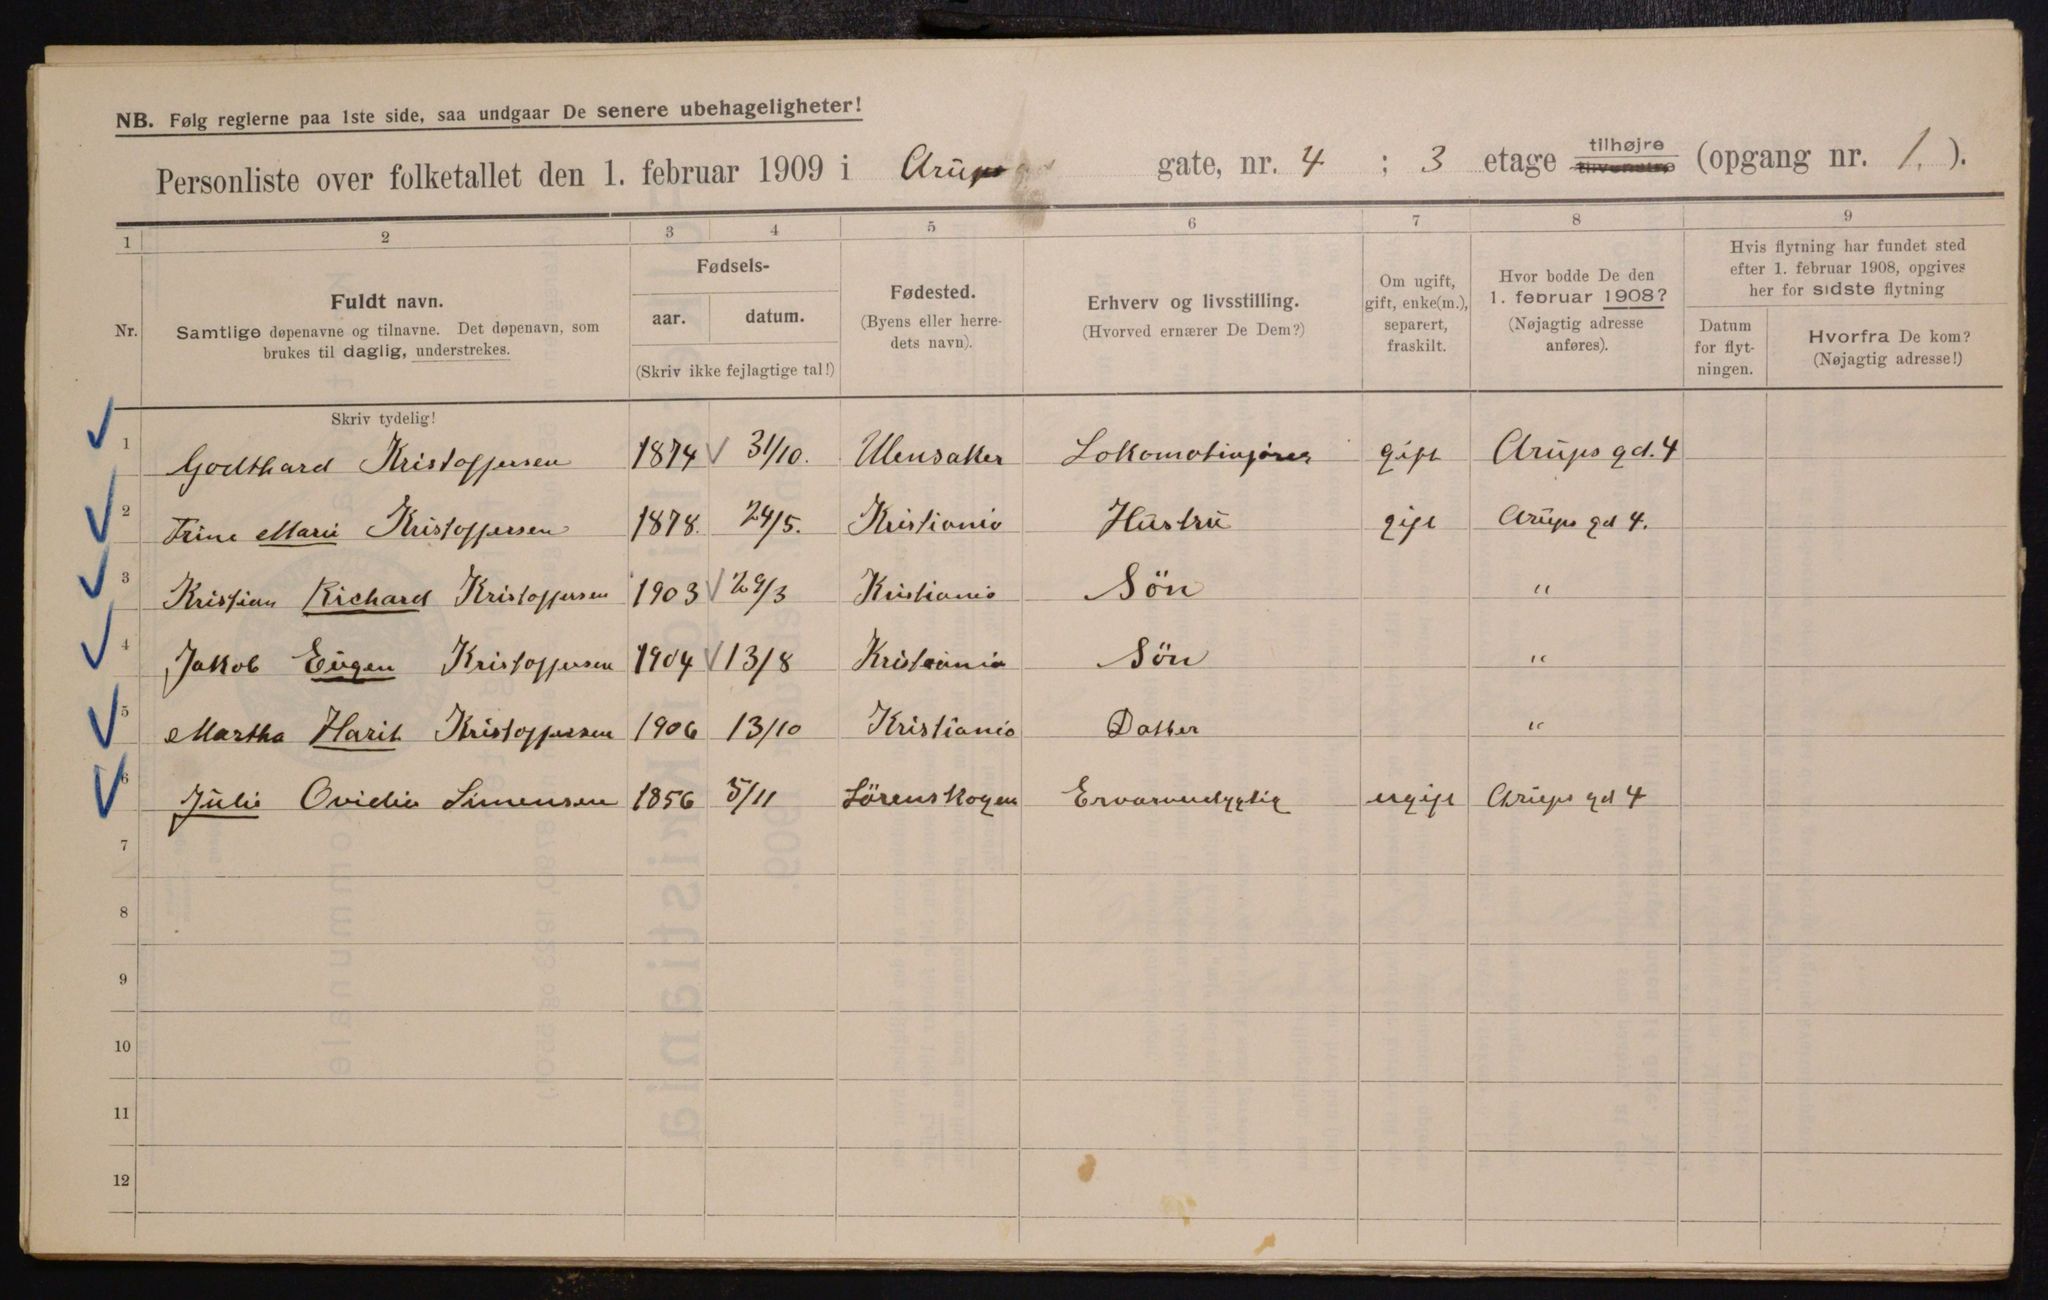 NB. Følg reglerne paa 1ste side, saa undgaar De senere ubehageligheter!
Personliste over folketallet den 1. februar 1909 i Arups gate, nr. 4 ; 3 etage tilhøjre tilvenstre (opgang nr. 1. ).
1 2 3 4 5 6 7 8 9
Nr. Fuldt navn. Samtlige døpenavne og tilnavne. Det døpenavn, som brukes til daglig, understrekes.
Fødsels-
aar. datum.
(Skriv ikke fejlagtige tal!)
Fødested. (Byens eller herredets navn).
Erhverv og livsstilling. (Hvorved ernærer De Dem?)
Om ugift, gift, enke(m.), separert, fraskilt.
Hvor bodde De den 1. februar 1908? (Nøjagtig adresse anføres).
Hvis flytning har fundet sted efter 1. februar 1908, opgives her for sidste flytning
Datum for flytningen.
Hvorfra De kom? (Nøjagtig adresse!)
Skriv tydelig!
1 Godthard Kristoffersen 1874 31/10. Ulensaker gift Arups gd. 4
2 Trine Marie Kristoffersen 1878. 24/5. Kristiania Hustru gift Arups gd 4.
3 Kristian Richard Kristoffersen 1903 29/3 Kristiania Sön "
4 Jakob Eugen Kristoffersen 1904 13/8 Kristiania Sön "
5 Martha Harit Kristoffersen 1906 13/10 Kristiania Datter "
6 Julie Ovidia Simensen 1856 5/11 Sörenskogen ugift Arups gd 4
7
8
9
10
11
12